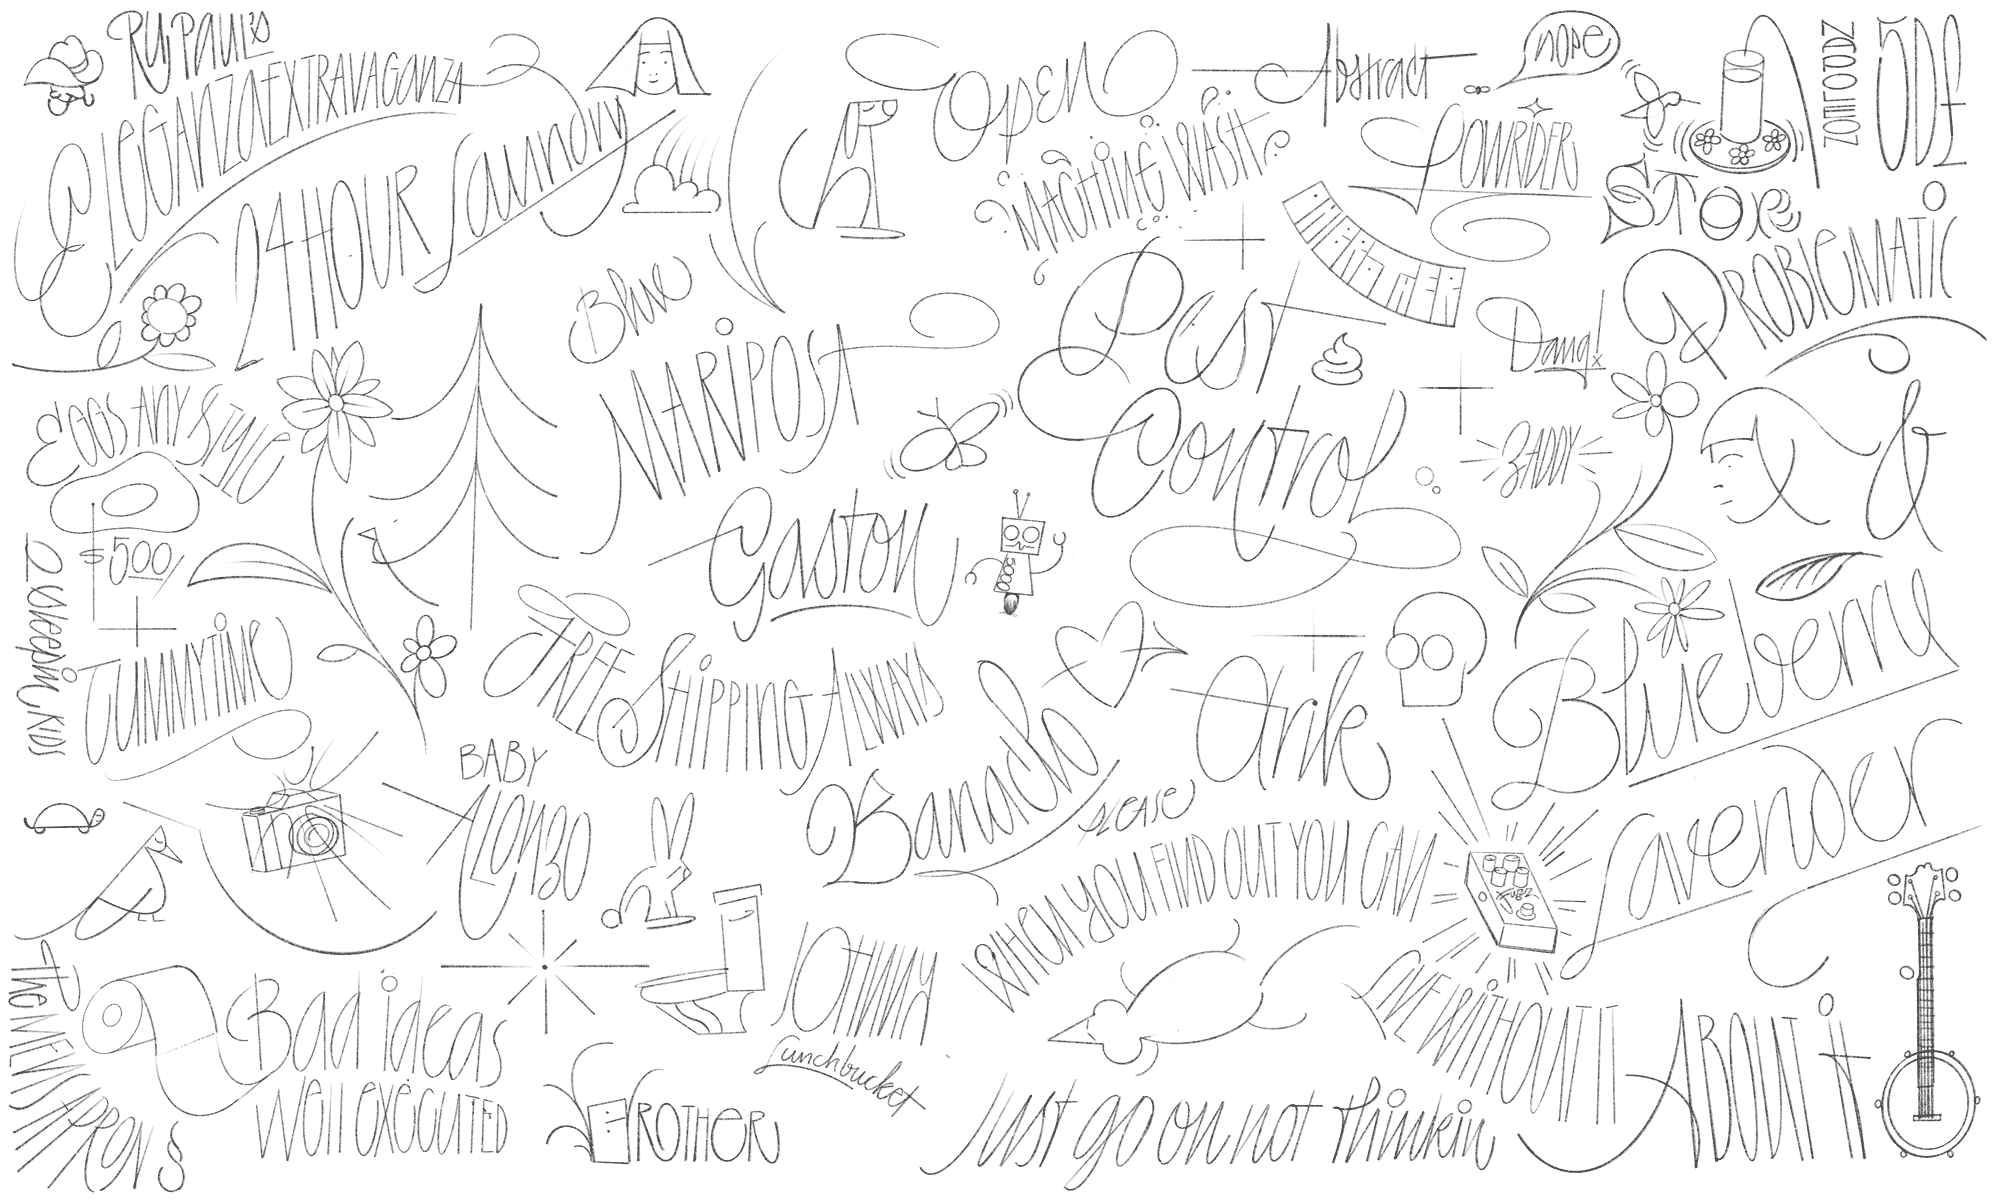 RuPaul's
EleganzaExtravaganza
24 HOUR
Laundry
Open
Abstract
nope
MACHINE WASH
LOWRIDER
ZOMTOUDZ
5DE
STORE
PROBLEMATIC
Blue
MARIPOSA
Pest
Control
Dang!
ZADDY
&
EGGS ANY STYLE
$5.00/
2 Sleepin Kids
TUMMYTIME
Gaston
5000
FREE SHIPPING ALWAYS
Banacho
Arik
Blueberry
Lavender
BABY
Alonzo
please
WHEN YOU FIND OUT YOU CAN
LIVE WITHOUT IT
Fuzz
The MEN'S APRONS
Bad ideas
Well executed
JOHNNY
Lunchbucket
BROTHER
Just go on not thinkin
ABOUT it